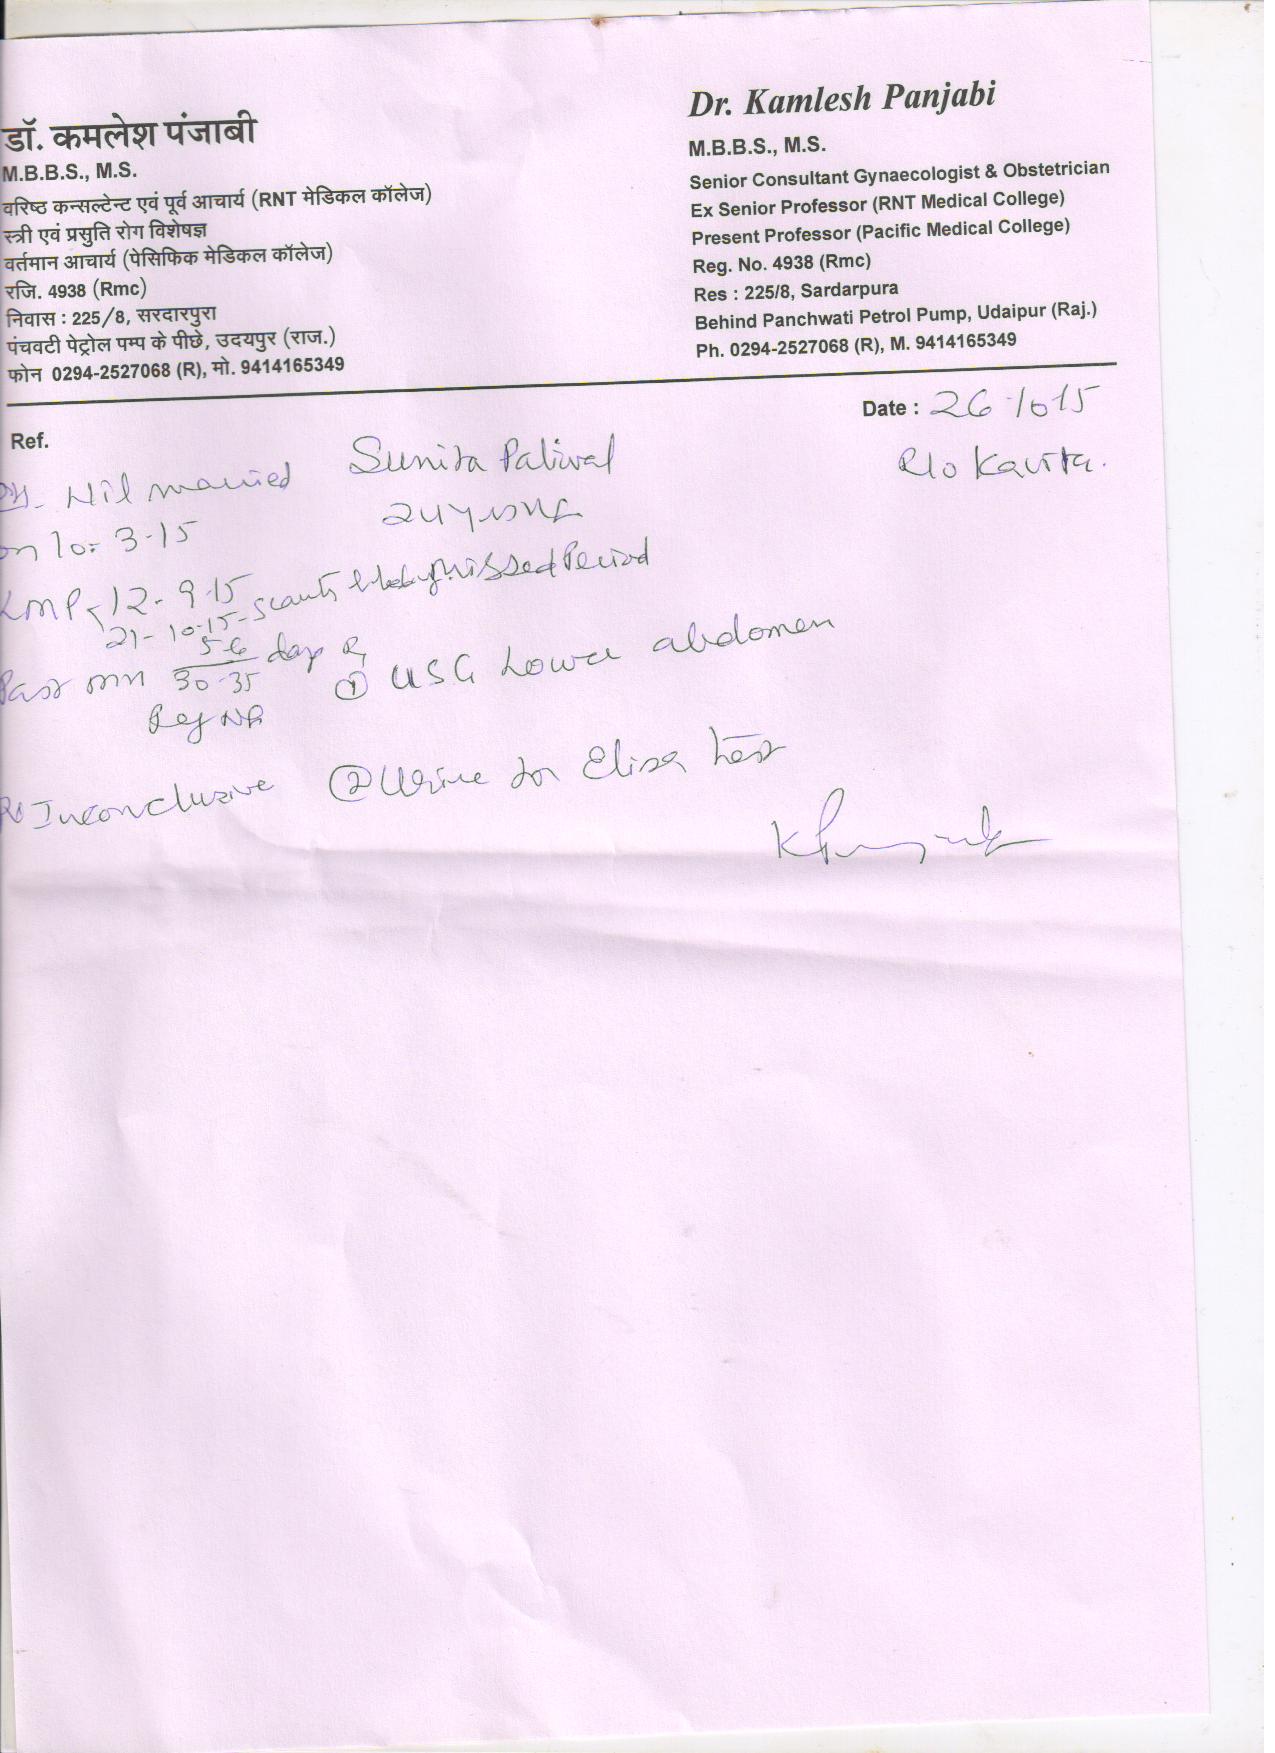 डॉ. कमलेश पंजाबी
M.B.B.S., M.S.
वरिष्ठ कन्सल्टेन्ट एवं पूर्व आचार्य (RNT मेडिकल कॉलेज)
स्त्री एवं प्रसुति रोग विशेषज्ञ
वर्तमान आचार्य (पेसिफिक मेडिकल कॉलेज)
रजि. 4938 (Rmc)
निवास : 225/8, सरदारपुरा
पंचवटी पेट्रोल पम्प के पीछे, उदयपुर (राज.)
फोन 0294-2527068 (R), मो. 9414165349
Dr. Kamlesh Panjabi
M.B.B.S., M.S.
Senior Consultant Gynaecologist & Obstetrician
Ex Senior Professor (RNT Medical College)
Present Professor (Pacific Medical College)
Reg. No. 4938 (Rmc)
Res : 225/8, Sardarpura
Behind Panchwati Petrol Pump, Udaipur (Raj.)
Ph. 0294-2527068 (R), M. 9414165349
Date : 26-10-15
Ref.
Sunita Paliwal
R/o
Nil married
on 10-3-15
24 yrs
LMP - 12-9-15
21-10-15 - Scanty Missed Period
Past MH 5-6/30-35 days
Reg
① USG Lower abdomen
Inconclusive
② Urine for Elisa test